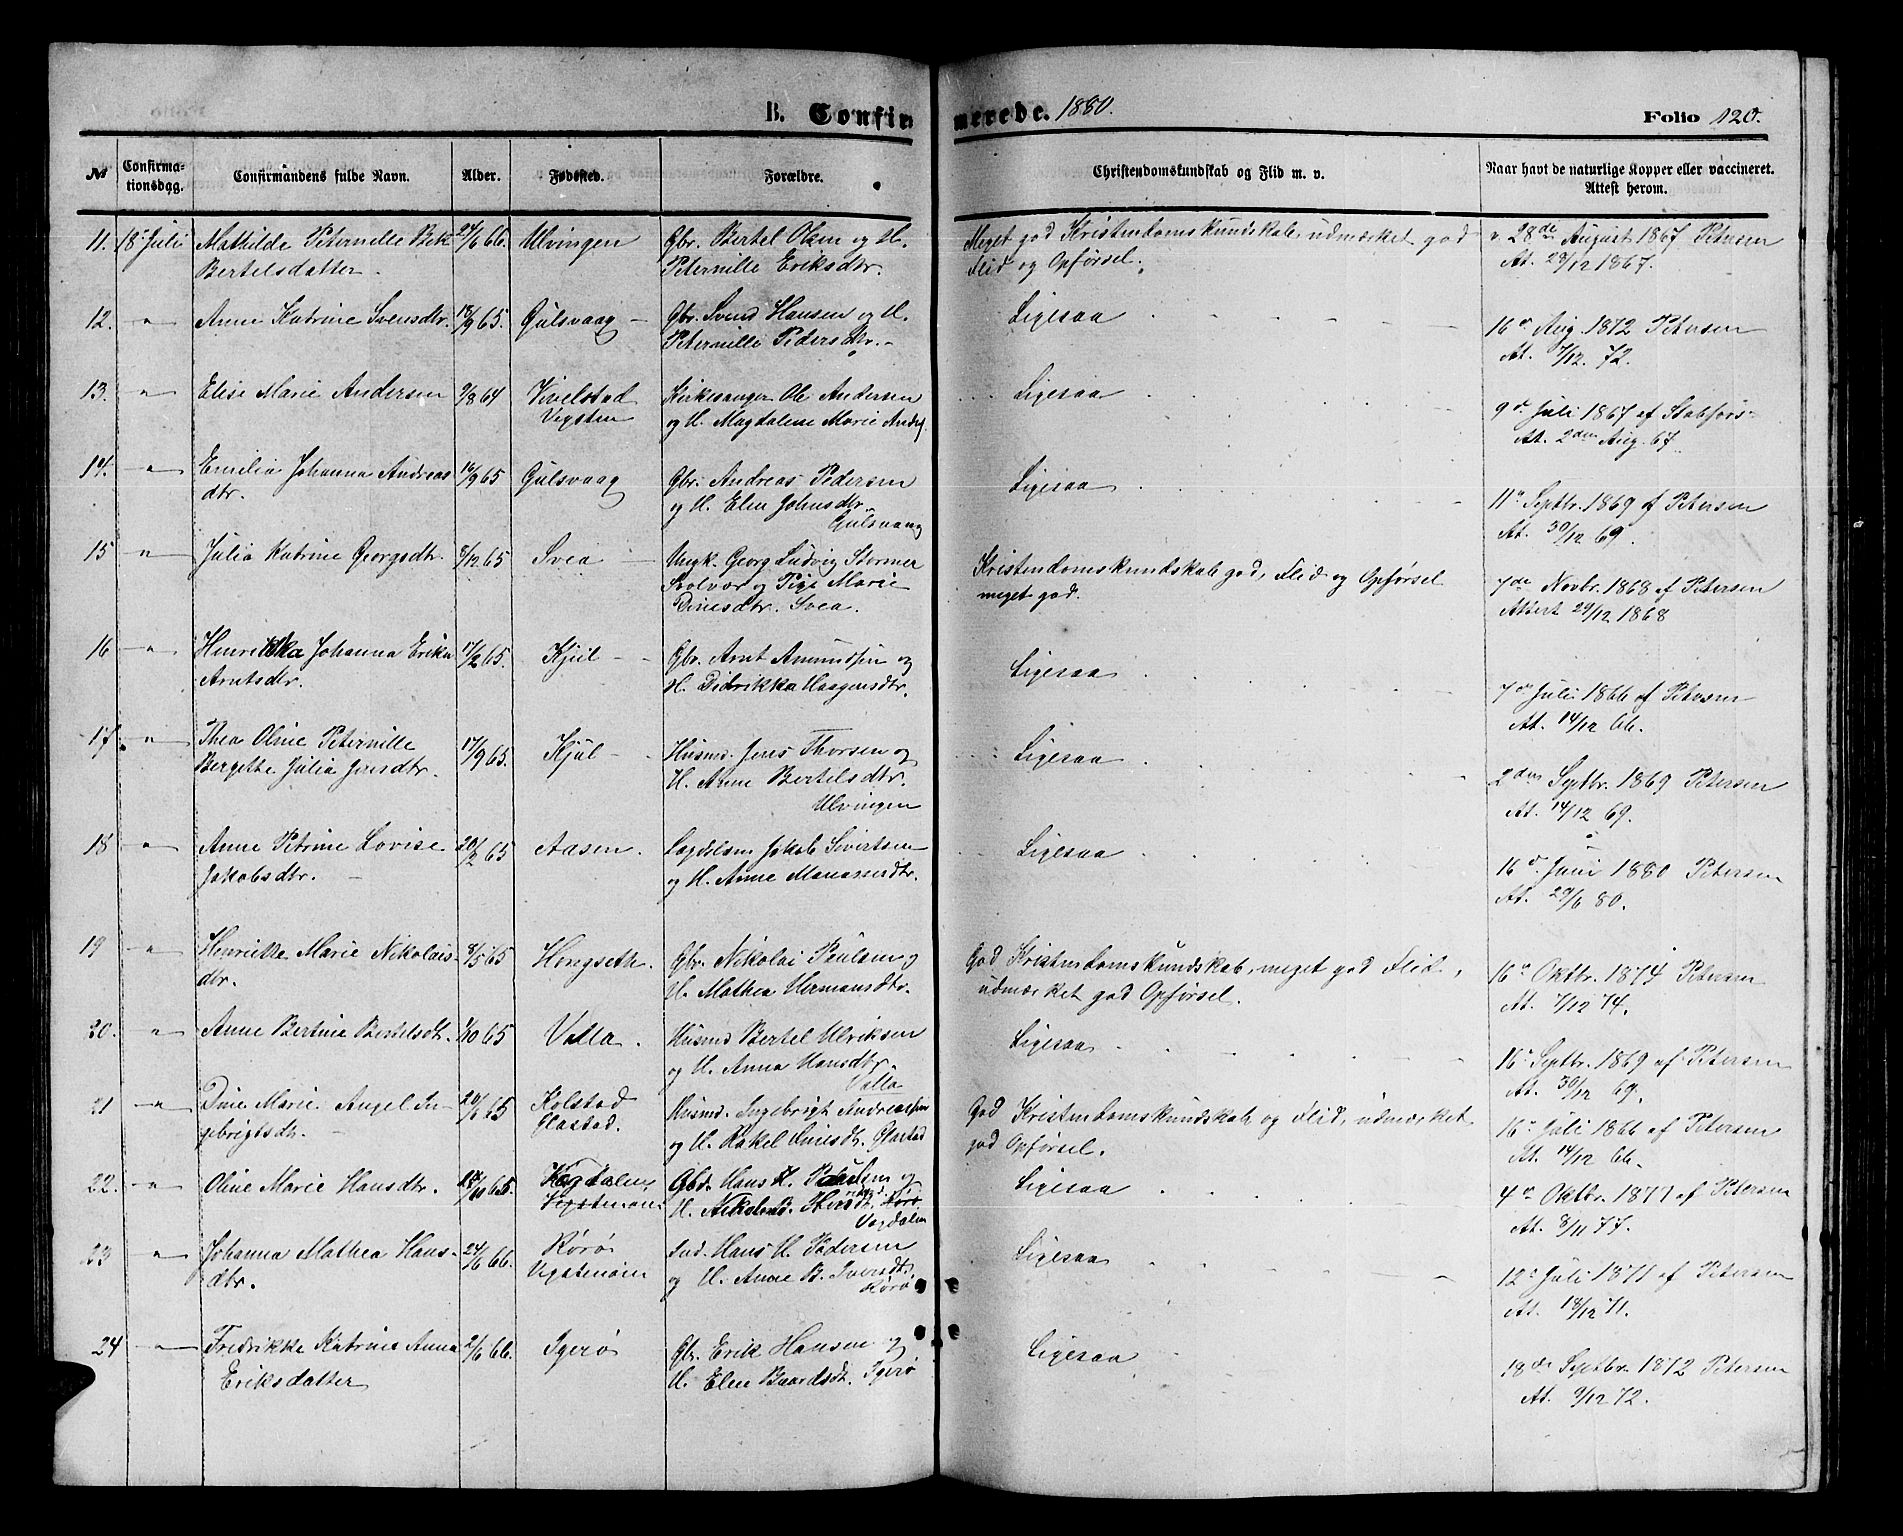 B. Confirmerede. 1880. Folio 120.
No Confirmationsdag. Confirmandens fulde Navn. Alder. Fødested. Forældre. Christendomskundskab og Flid m. v. Naar havt de naturlige Kopper eller vaccineret. Attest herom.
11. 18. Juli Mathilde Peternille Bertelsdatter 24/6 66. Ulvingen Gbr. Bertel Olsen og H. Peternille Eriksdtr. Meget god Kristendomskundskab, udmærket god Flid og Opførsel. v. 28de August 1867 Petersen At. 28/12 1867.
12. " Anne Katrine Svensdtr. 13/9 65. Gulsvaag Gbr. Svend Hansen og H. Peternille Pedersdtr. Ligesaa 16d Aug. 1872 Petersen At. 7/12. 72.
13. " Elise Marie Andersen 9/8 64 Vivelstad Vegsten Kirkesanger Ole Andersen og H. Magdalene Marie Ligesaa 9d Juli 1867 af At. 2den Aug. 67.
14. " Emilie Johanna Andreasdtr. 16/9 65 Gulsvaag Gbr. Andreas Pedersen og H. Elen Johnsdtr. Gulsvaag Ligesaa 11d Septbr. 1869 af Petersen At. 30/12 69.
15 " Julia Katrine Georgsdtr. 5/12 65 Svea Ungk. Georg Ludvig Stormer Solvær og Pige Marie Dinesdtr. Svea. Kristendomskundskab god, Flid og Opførsel meget god. 7de Novbr. 1868 af Petersen Attest 29/12 1868
16 " Henrikka Johanna Erika Arntsdtr. 17/2 65. Kjul Gbr. Arnt Amundsen og H. Didrikka Haagensdtr. Ligesaa 7de Juli 1866 af Petersen At. 14/12 66.
17. " Thea Oline Peternille Bergitte Julia Jensdtr. 17/9 65. Kjul Husmd. Jens Thorsen og H. Anne Bertelsdtr. Ulvingen Ligesaa 2den Septbr. 1869 Petersen At. 14/12 69.
18 " Anne Petrine Lovise Jakobsdtr. 20/2 65 Aasen. Jakob Sivertsen og H. Anne Ligesaa 16d Juni 1880 Petersen At. 29/6 80.
19 " Henrikke Marie Nikolaisdtr. 8/5 65 Hongseth. Gbr. Nikolai Paulsen og H. Mathea Hermansdtr. God Kristendomskundskab, meget god Flid, udmærket god Opførsel. 16d Oktbr. 1874 Petersen At. 7/12 74.
20. " Anne Bertine Bertelsdtr. 1/10 65 Valla. Husmd Bertel Ulriksen og H. Anna Hansdtr. Valla Ligesaa 16d Septbr. 1869 af Petersen At. 30/12 69.
21 " Dine Marie Angel Ingebrigtsdtr. 20/6 65 Kolstad Glastad. Husmd. Ingebrigt Andreassen og H. Rakel Glastad God Kristendomskundskab og Flid, udmærket god Opførsel. 16d Juli 1866 af Petersen At. 14/12 66.
22. " Oline Marie Hansdtr. 25/10 65. Vagdalen Vegstenøen Gbd. Hans H. Paulsen og H. Vagdalen Ligesaa 4d Oktbr. 1877 af Petersen At. 8/11 77.
23 " Johanna Mathea Hansdtr. 24/6 66. Rørø Vegstenøen Ind. Hans H. Pedersen og H. Anne B. Iversdtr. Rørø Ligesaa 12d Juli 1871 af Petersen At. 18/12 71.
24 " Fredrikke Katrine Anna Eriksdatter 2/6 66. Igerø Gbr. Erik Hansen og H. Elen Baardsdtr. Igerø Ligesaa 18de Septbr. 1872 Petersen At. 9/12 72.